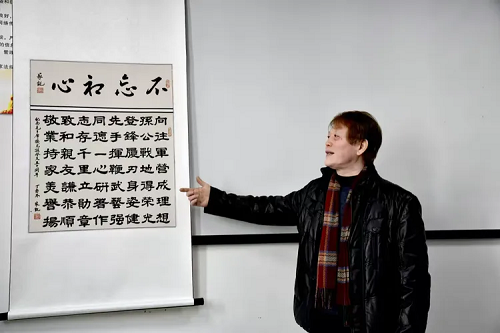 不忘初心
向往軍營成理想
孫公戰地得榮光
登鋒履刃身姿健
先手揮鞭武藝强
同德一心研著作
志存千里立勛章
致和親友謙恭順
敬業持家美譽揚